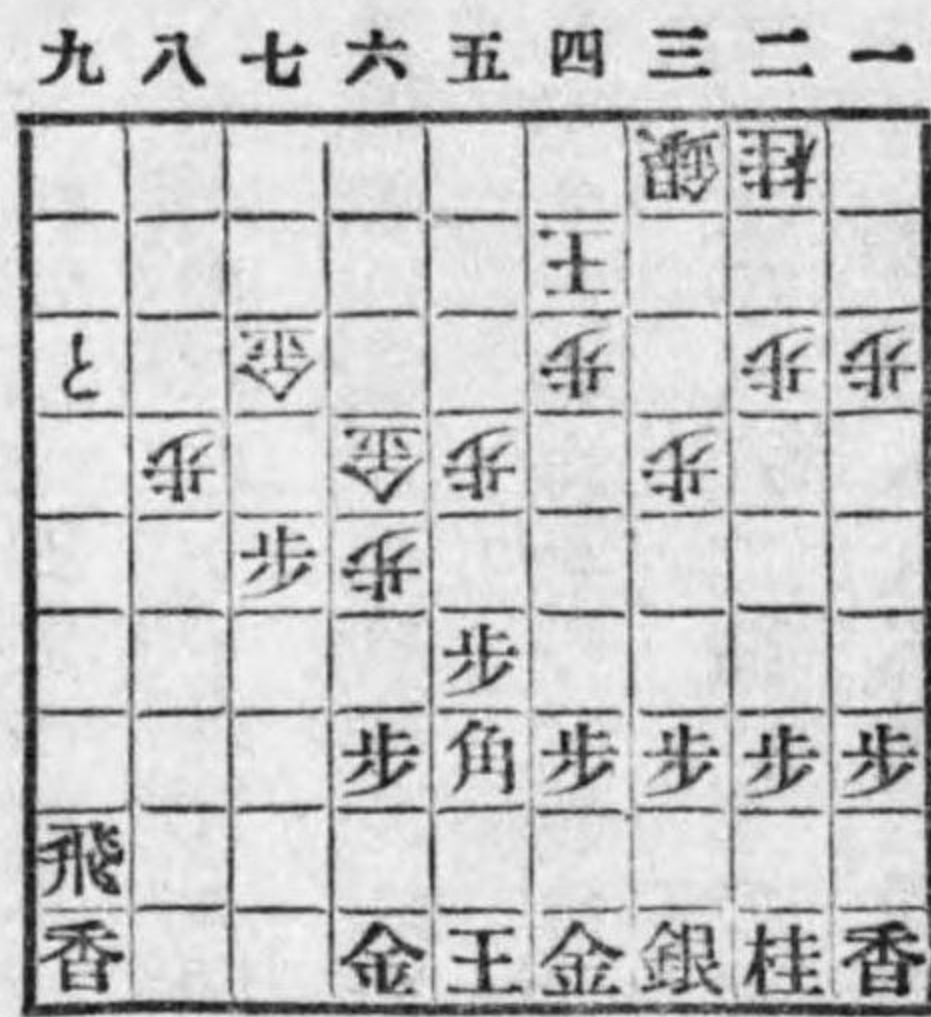 九 八 七 六 五 四 三 二 一
銀 桂
王
と 金 歩 歩 歩
歩 金 歩 歩
歩 歩
歩
歩 角 歩 歩 歩 歩
飛
香 金 王 金 銀 桂 香